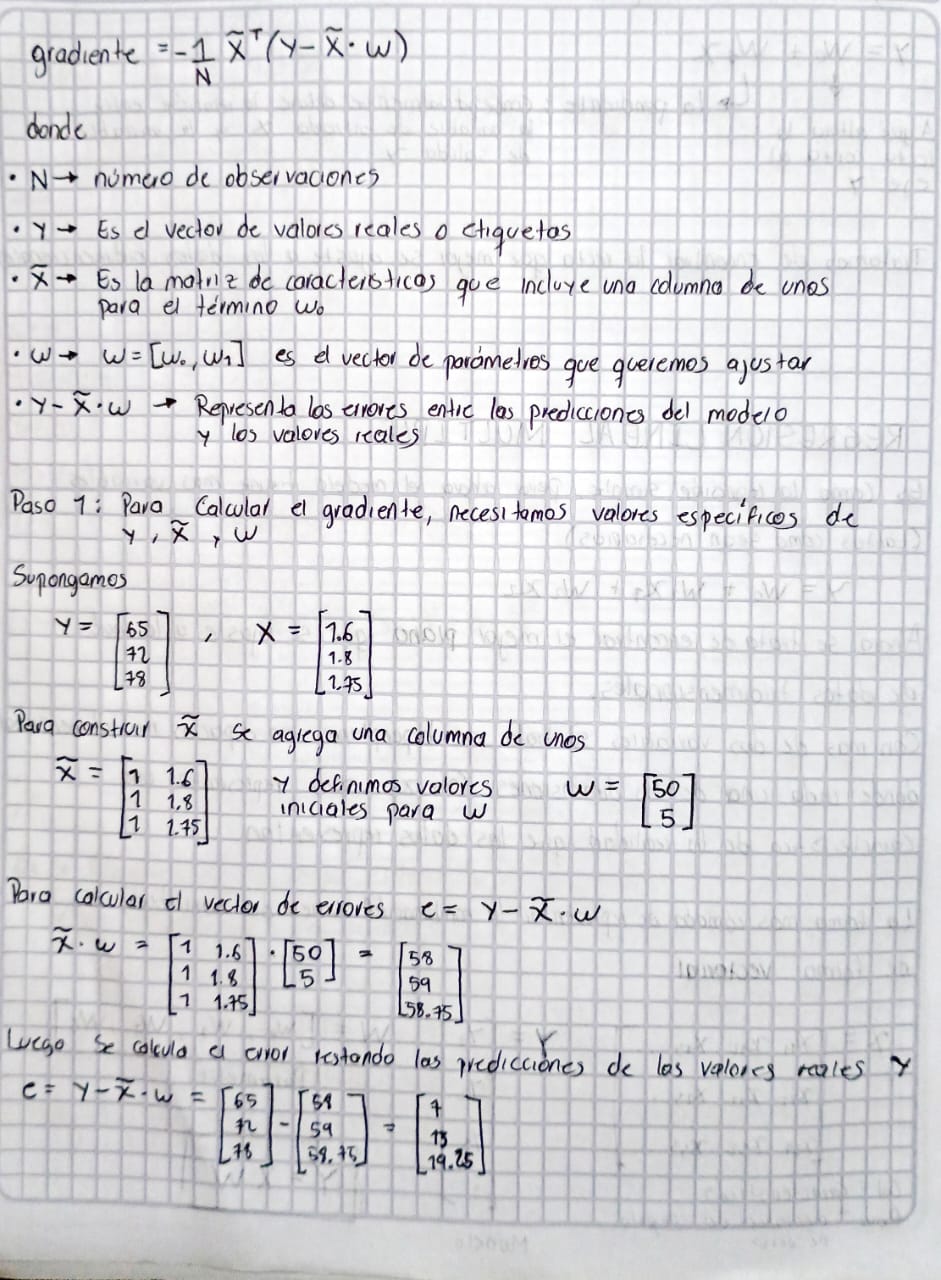 gradiente = -1/N X̃ᵀ(Y - X̃ · W)
donde
• N → número de observaciones
• Y → Es el vector de valores reales o etiquetas
• X̃ → Es la matriz de características que incluye una columna de unos
para el término W₀
• W → W = [W₀, W₁] es el vector de parámetros que queremos ajustar
• Y - X̃ · W → Representa los errores entre las predicciones del modelo
y los valores reales
Paso 1: Para Calcular el gradiente, necesitamos valores específicos de
Y, X̃, W
Supongamos
Y = [65 72 78], X = [1.6 1.8 1.75]
Para construir X̃ se agrega una columna de unos
X̃ = [1 1.6 1 1.8 1 1.75] Y definimos valores iniciales para W W = [50 5]
Para calcular el vector de errores e = Y - X̃ · W
X̃ · W = [1 1.6 1 1.8 1 1.75] · [50 5] = [58 59 58.75]
Luego se calcula el error restando las predicciones de los valores reales Y
e = Y - X̃ · W = [65 72 78] - [58 59 58.75] = [7 13 19.25]